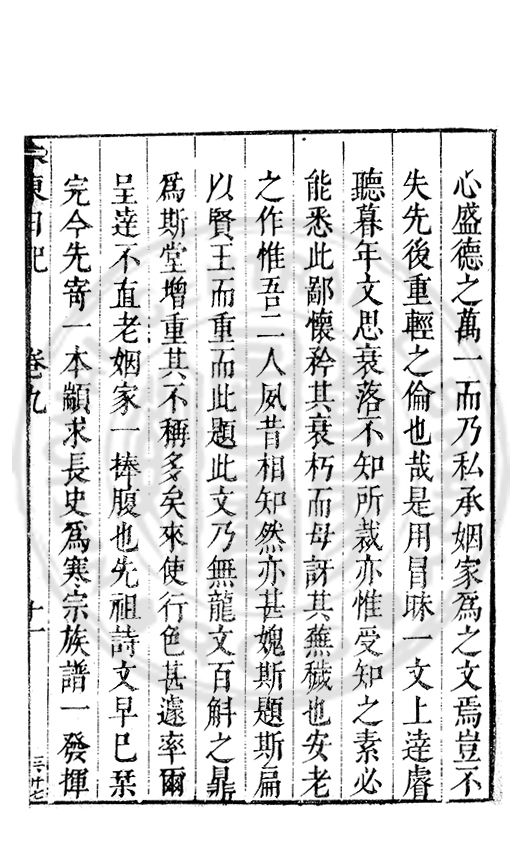 心盛德之萬一而乃私承姻家爲之文焉豈不
失先後重輕之倫也哉是用冒昧一文上逹睿
聽暮年文思衰落不知所裁亦惟受知之素必
能悉此鄙懷矜其衰朽而毋訝其蕪穢也安老
之作惟吾二人夙昔相知然亦甚媿斯題斯扁
以賢王而重而此題此文乃無龍文百斛之鼎
爲斯堂增重其不稱多矣來使行色甚遽率爾
呈逹不直老姻家一捧腹也先祖詩文早已栞
完今先寄一本顓求長史爲寒宗族譜一發揮
東日記
卷九
十一
三·廿七